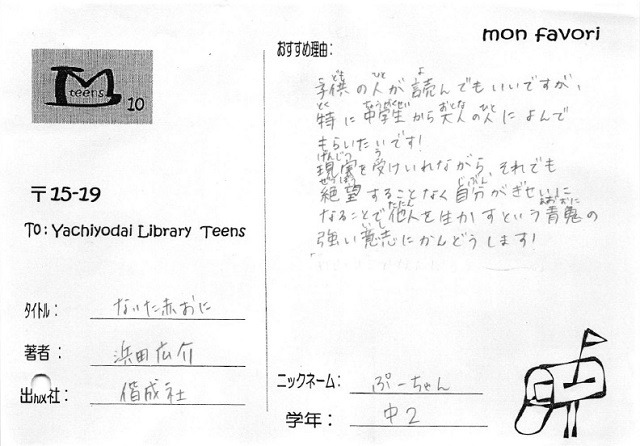 mon favori
M teens 10
〒15-19
To: Yachiyodai Library Teens
タイトル: ないた赤おに
著者: 浜田広介
出版社: 偕成社
おすすめ理由:
子供の人が読んでもいいですが、
特に中学生から大人の人によんで
もらいたいです!
現実を受けいれながら、それでも
絶望することなく自分がぎせいに
なることで他人を生かすという青鬼の
強い意志にかんどうします!
ニックネーム: ぷーちゃん
学年: 中2